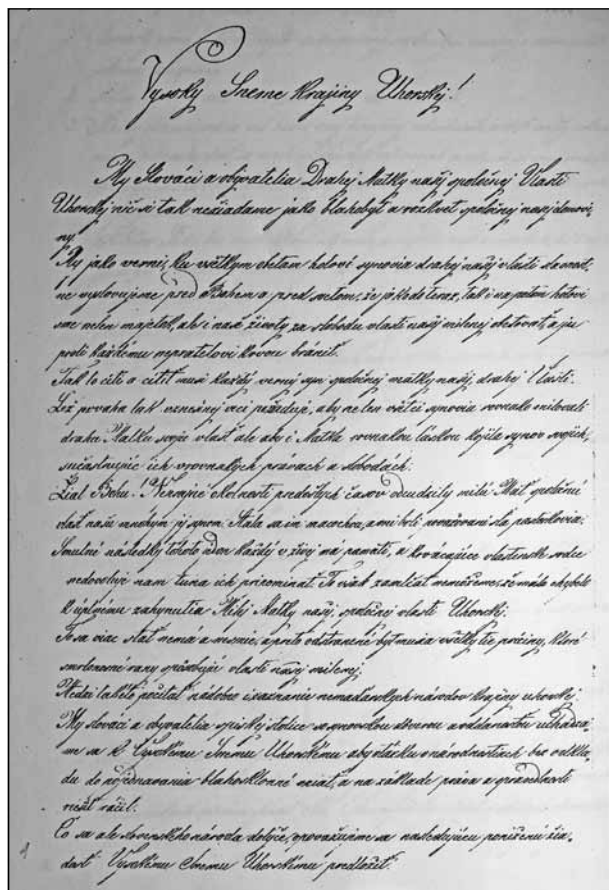 Vysoký Sneme Krajiny Uhorskej!
My Slováci a obyvatelia Drahej Matky našej spoločnej Vlasti
Uhorskej nič si tak nežiadame jako blahobyt a rozkvet spoločnej našej domovi,
ny
My jako verní, ku všetkým obetam hotoví synovia drahej našej vlasti slavnost,
ne vyslovujeme pred Bohom a pred svetom, že jak doteraz, tak i na potom hotoví
sme nelen majetok, ale i naše životy za slobodu vlasti našej milenej obetovať, a ju
proti každému nepratelovi krvou brániť.
Tak to cíti a cítiť musí každý verný syn spoločnej matky našej, drahej Vlasti.
Lež povaha tak vznešenej veci požaduje, aby nelen všetci synovia rovnako milovali
drahú Matku svoju vlasť ale aby i Matka rovnakou láskou kojila synov svojich,
sučastnujúc ich v rovnakých právach a slobodách.
Žial Bohu! Neprajné okolnosti predošlých časov odcudzily milú Mať spoločnú
vlasť našu mnohým jej synom. Stala sa im macochou, a mi boli považovaní za pastorkov
Smutné následky tohoto iďou každý v živej má pamäti, a krvácajúce vlastenské srdce
nedovoluje nam tuna ich pripomínať. To však zamlčať nemôžeme, že málo chybelo
k úplnému zahynutiu Milej Matky našej, spoločnej vlasti Uhorskej.
To sa viac stať nemá a nesmie, a preto odstranené byť musia všetky tie príčiny, ktoré
smrtonosné rany spôsobujú vlasti našej milenej.
Medzi tieto počítať nádobno i nemaďarských národov krajiny uhorskej
My slováci a obyvatelia spišskej stolice so synovskou dôverou a oddanosťou utiekáme
me sa k Vysokému Snemu Uhorskému aby otázku o národnostiach bez odkla,
du do pojednávania blahosklonne vziať, a na základe práva a spravedlnosti
riešiť ráčil.
Čo sa ale slovenského národa dotýče, opovažujeme sa nasledujúcu poníženú žia,
dosť Vysokému Snemu Uhorskému predložiť.